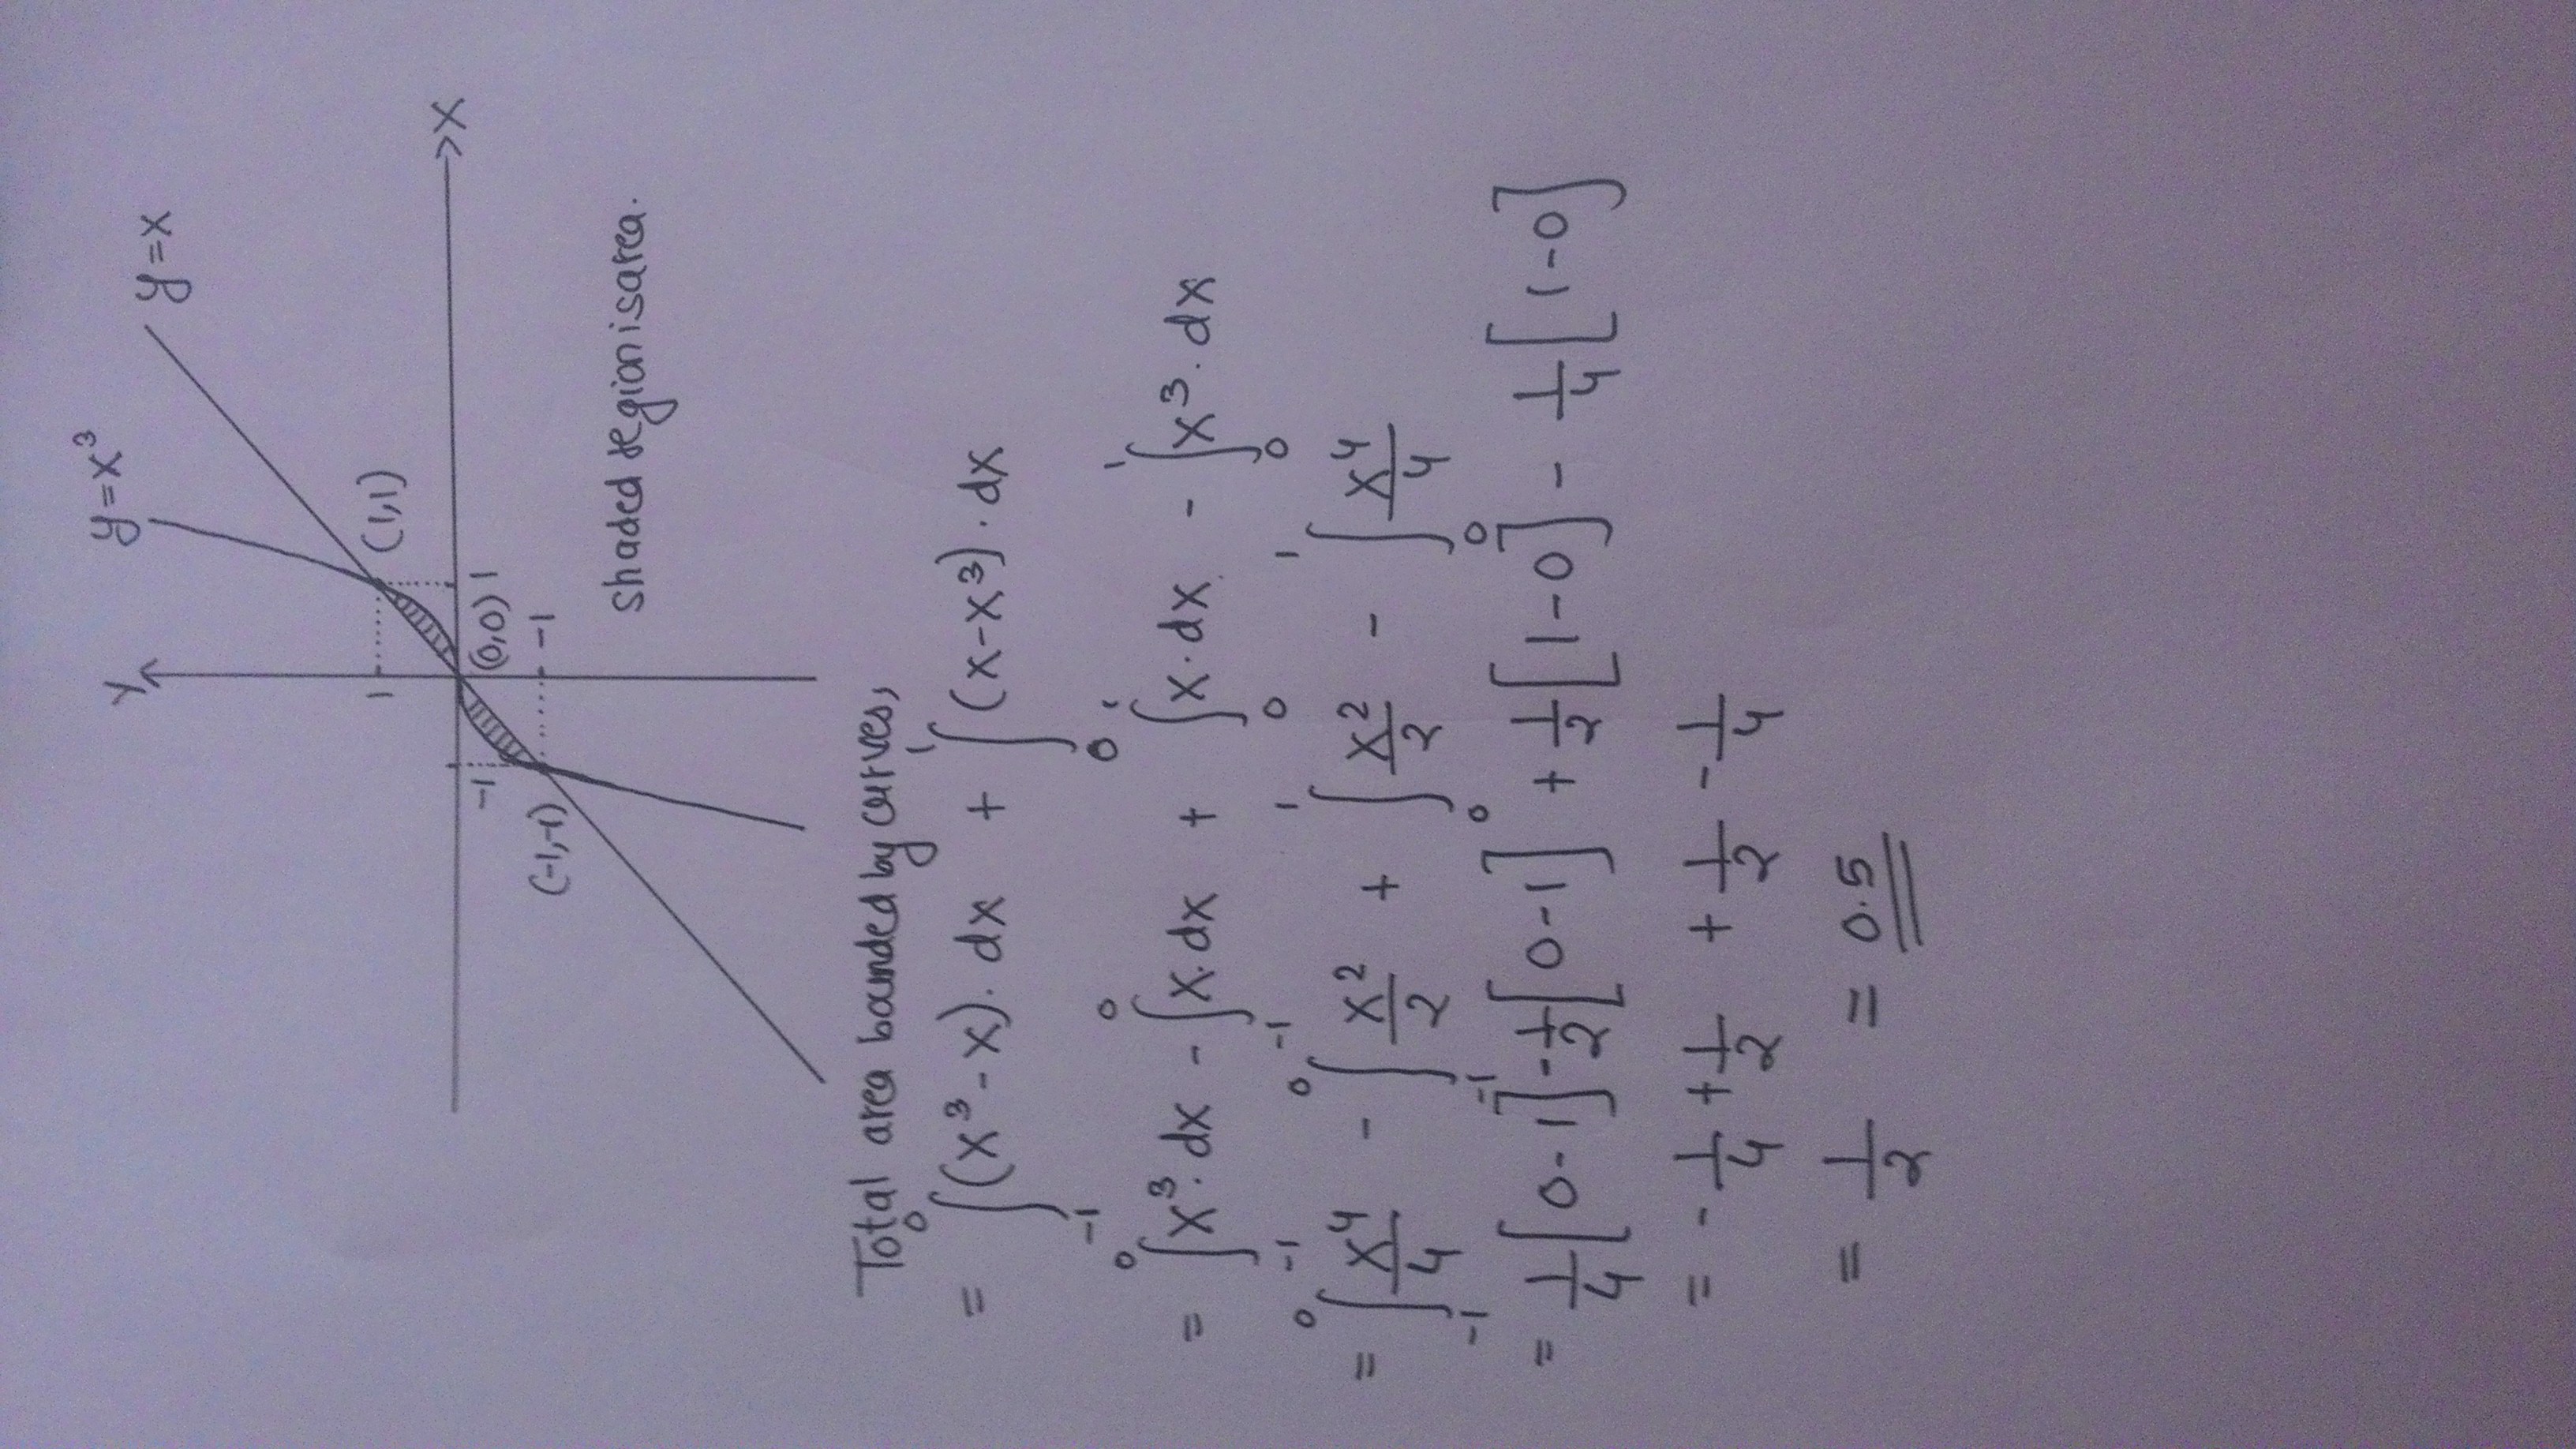 y=x³
y=x
Y
(1,1)
1
X
-1
(0,0)
1
-1
(-1,-1)
shaded region is area.
Total area bounded by curves,
= ∫₋₁⁰ (x³-x).dx + ∫₀¹ (x-x³).dx
= ∫₋₁⁰ x³.dx - ∫₋₁⁰ x.dx + ∫₀¹ x.dx - ∫₀¹ x³.dx
= ∫₋₁⁰ x⁴/4 - ∫₋₁⁰ x²/2 + ∫₀¹ x²/2 - ∫₀¹ x⁴/4
= 1/4 [0-1] - 1/2 [0-1] + 1/2 [1-0] - 1/4 [1-0]
= - 1/4 + 1/2 + 1/2 - 1/4
= 1/2 = 0.5